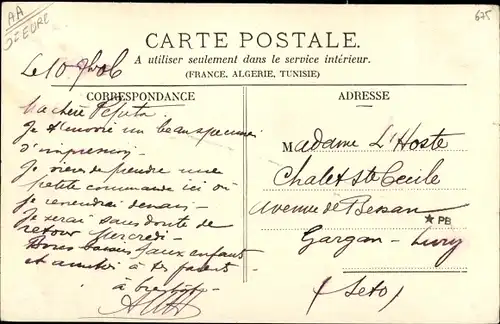 AA
J = EURE
675
CARTE POSTALE.
A utiliser seulement dans le service intérieur.
(FRANCE, ALGERIE, TUNISIE)
CORRESPONDANCE
ADRESSE
Le 10
Ma chère
Je t'envoie un beau specimen
d'impression.
Je viens de prendre une
petite commande ici où
je reviendrai demain -
Je serai sans doute de
retour Mercredi -
Bons baisers aux enfants
et amitiés à tes parents -
à bientôt
Madame L'Hoste
Chalet Ste Cecile
Avenue de Bessan
★ PB
Gargan - Livry
(Seto)